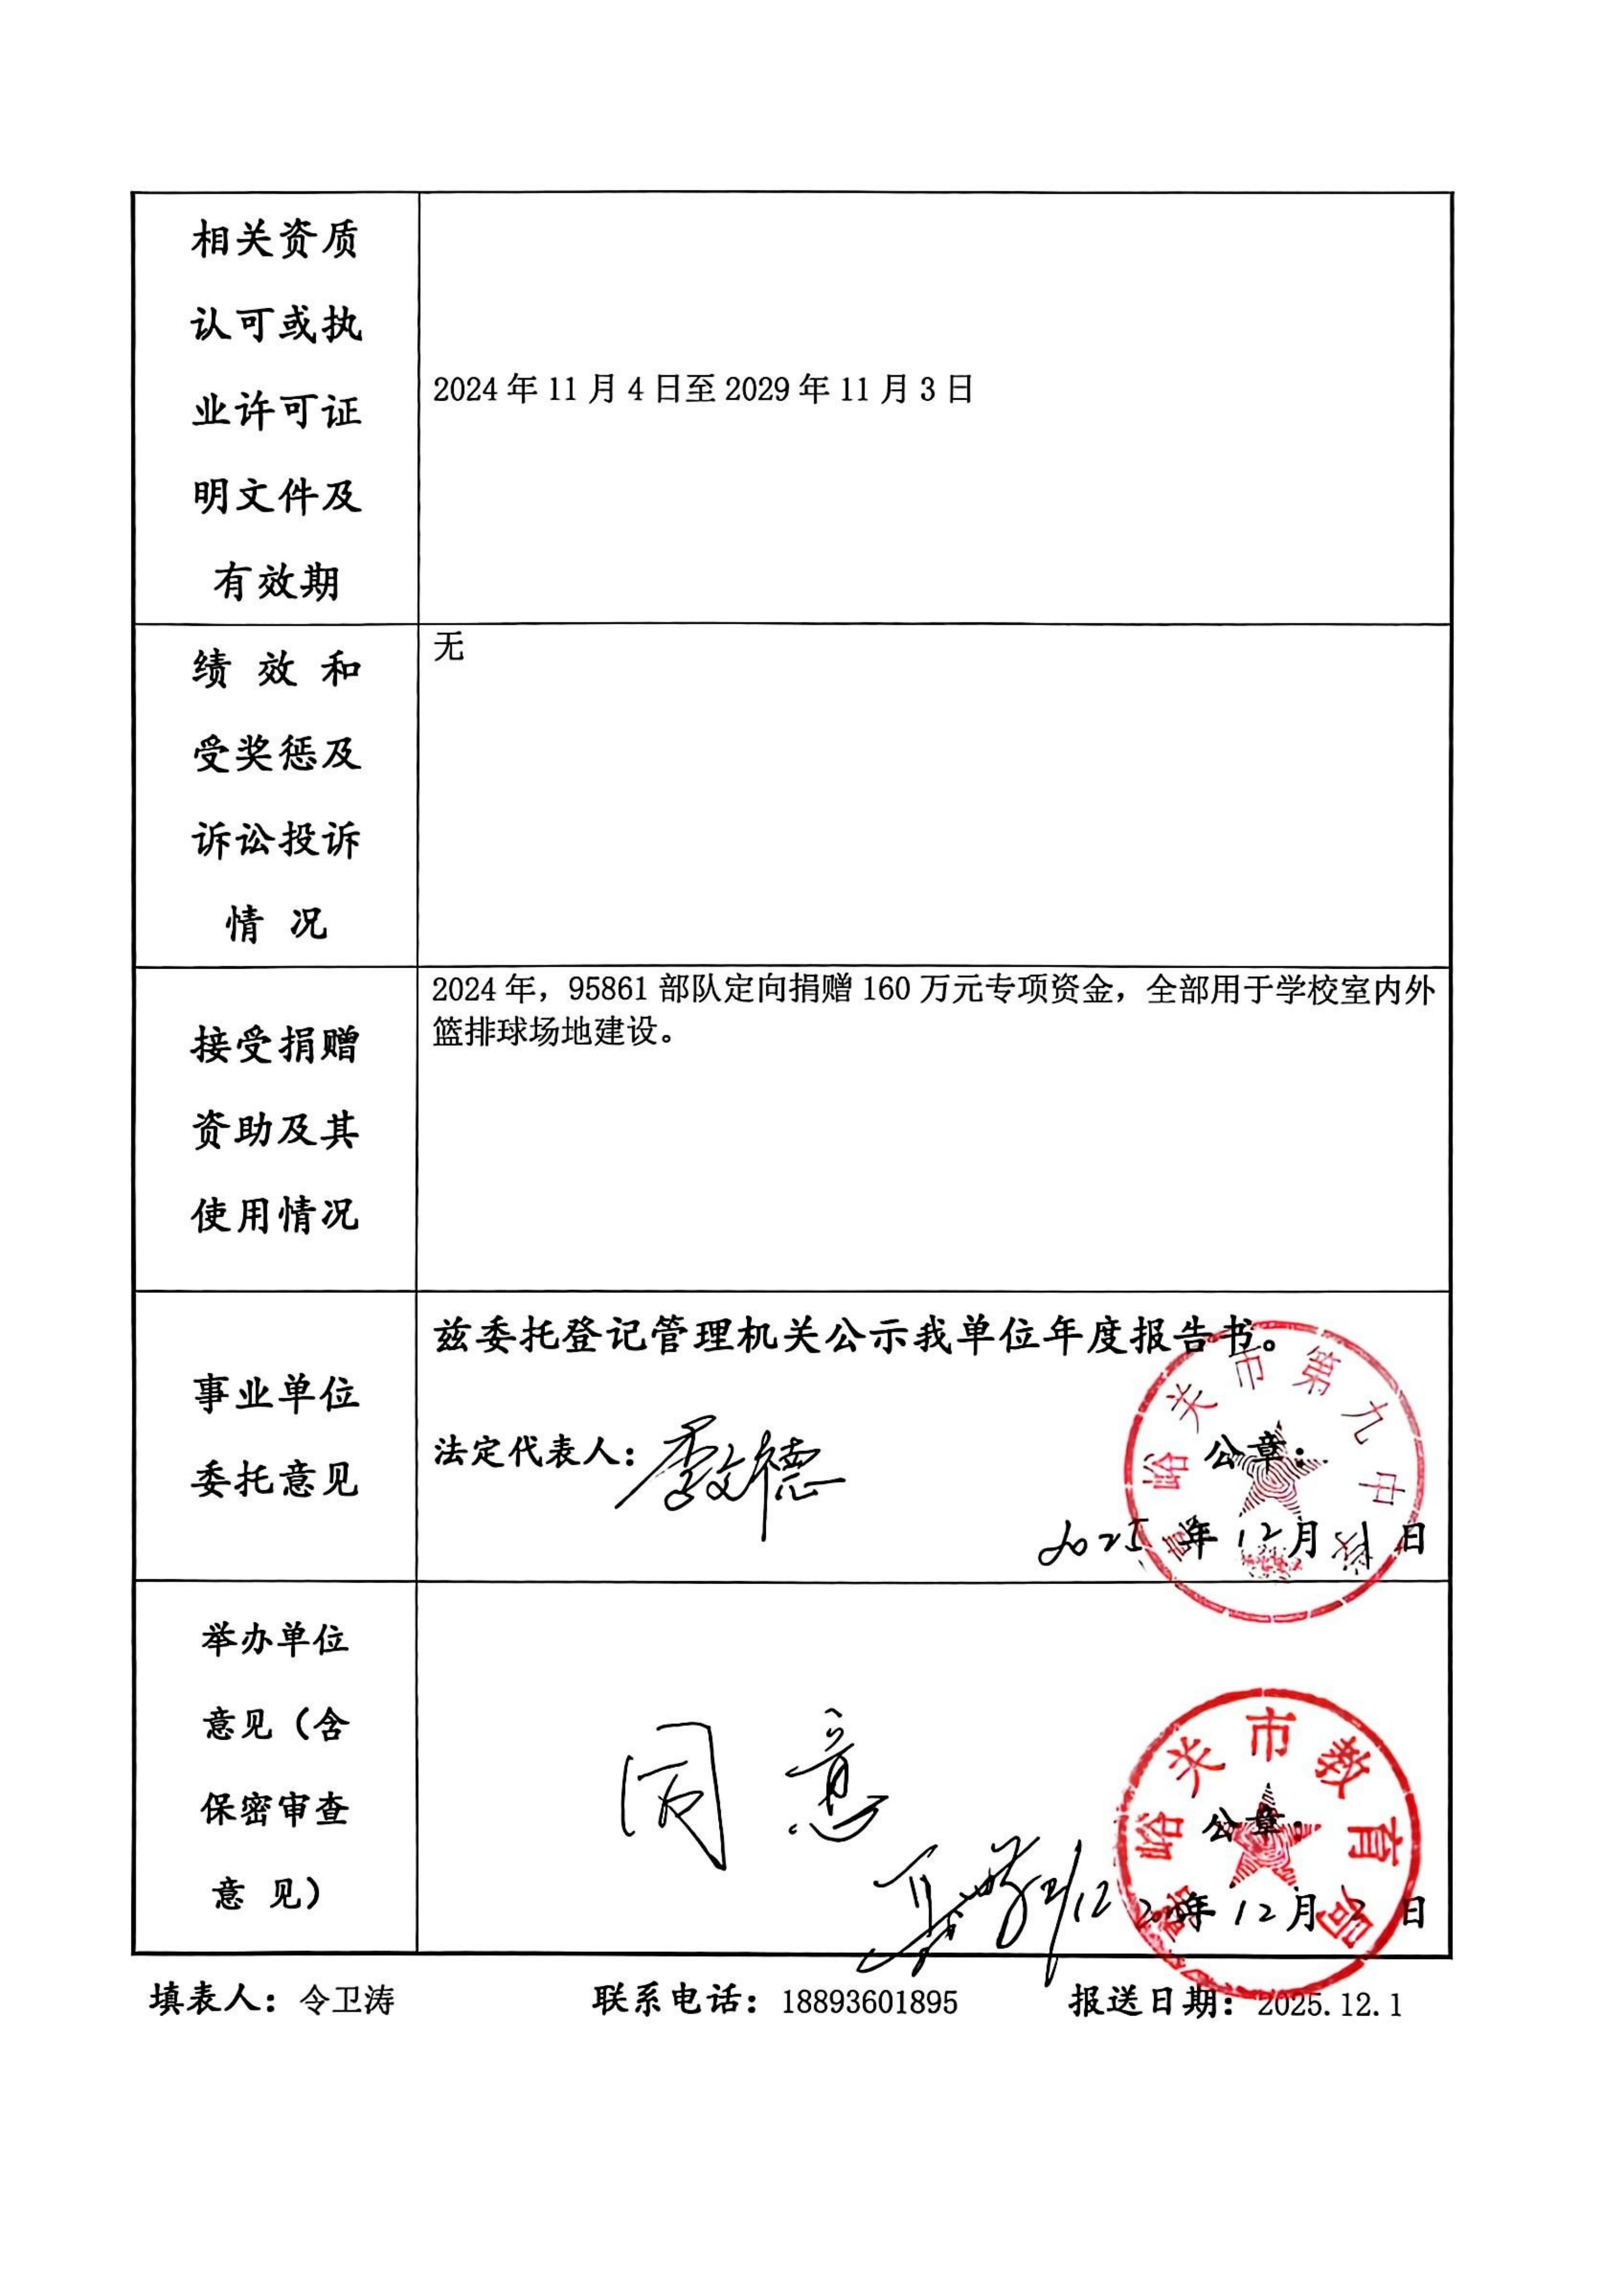 相关资质
认可或执
业许可证
明文件及
有效期
2024年11月4日至2029年11月3日
绩 效 和
受奖惩及
诉讼投诉
情 况
无
接受捐赠
资助及其
使用情况
2024年，95861部队定向捐赠160万元专项资金，全部用于学校室内外
篮排球场地建设。
事业单位
委托意见
兹委托登记管理机关公示我单位年度报告书。
法定代表人：
公章：
2025年12月1日
嘉峪关市第九中学
举办单位
意见（含
保密审查
意 见）
同意
公章：
年12月2日
嘉峪关市教育局
填表人：令卫涛 联系电话：18893601895 报送日期：2025.12.1